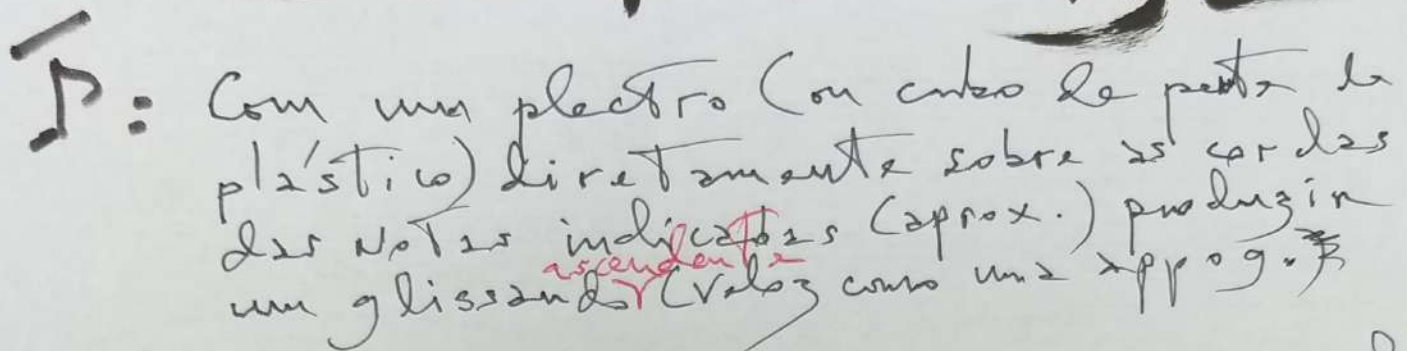 ♪: Com um plectro (ou cabo de pente de
plástico) diretamente sobre as cordas
das notas indicadas (aprox.) produzir
um glissando ascendente (veloz como uma appog.